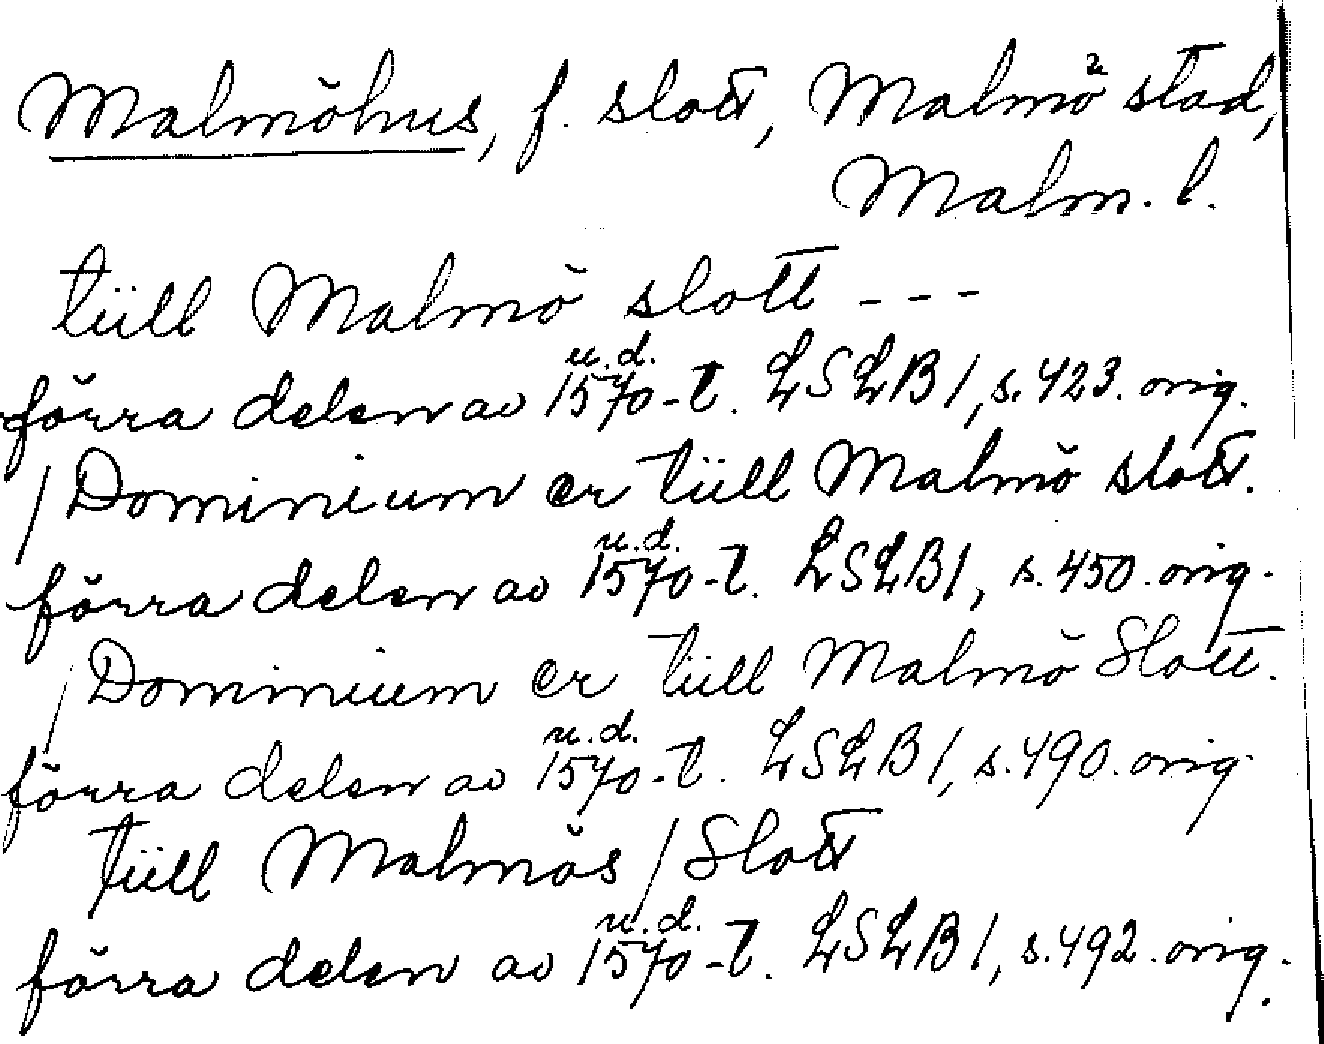 Malmöhus, f. slott, Malmö stad,
Malm. l.
tiill Malmö slott - - -
u. d.
förra delen av 1570-t. LSLB 1, s. 423. orig.
/ Dominium er tiill Malmö slott.
u. d.
förra delen av 1570-t. LSLB 1, s. 450. orig.
/ Dominium er tiill Malmö Slott.
u. d.
förra delen av 1570-t. LSLB 1, s. 490. orig.
tiill Malmös / Slott
u. d.
förra delen av 1570-t. LSLB 1, s. 492. orig.